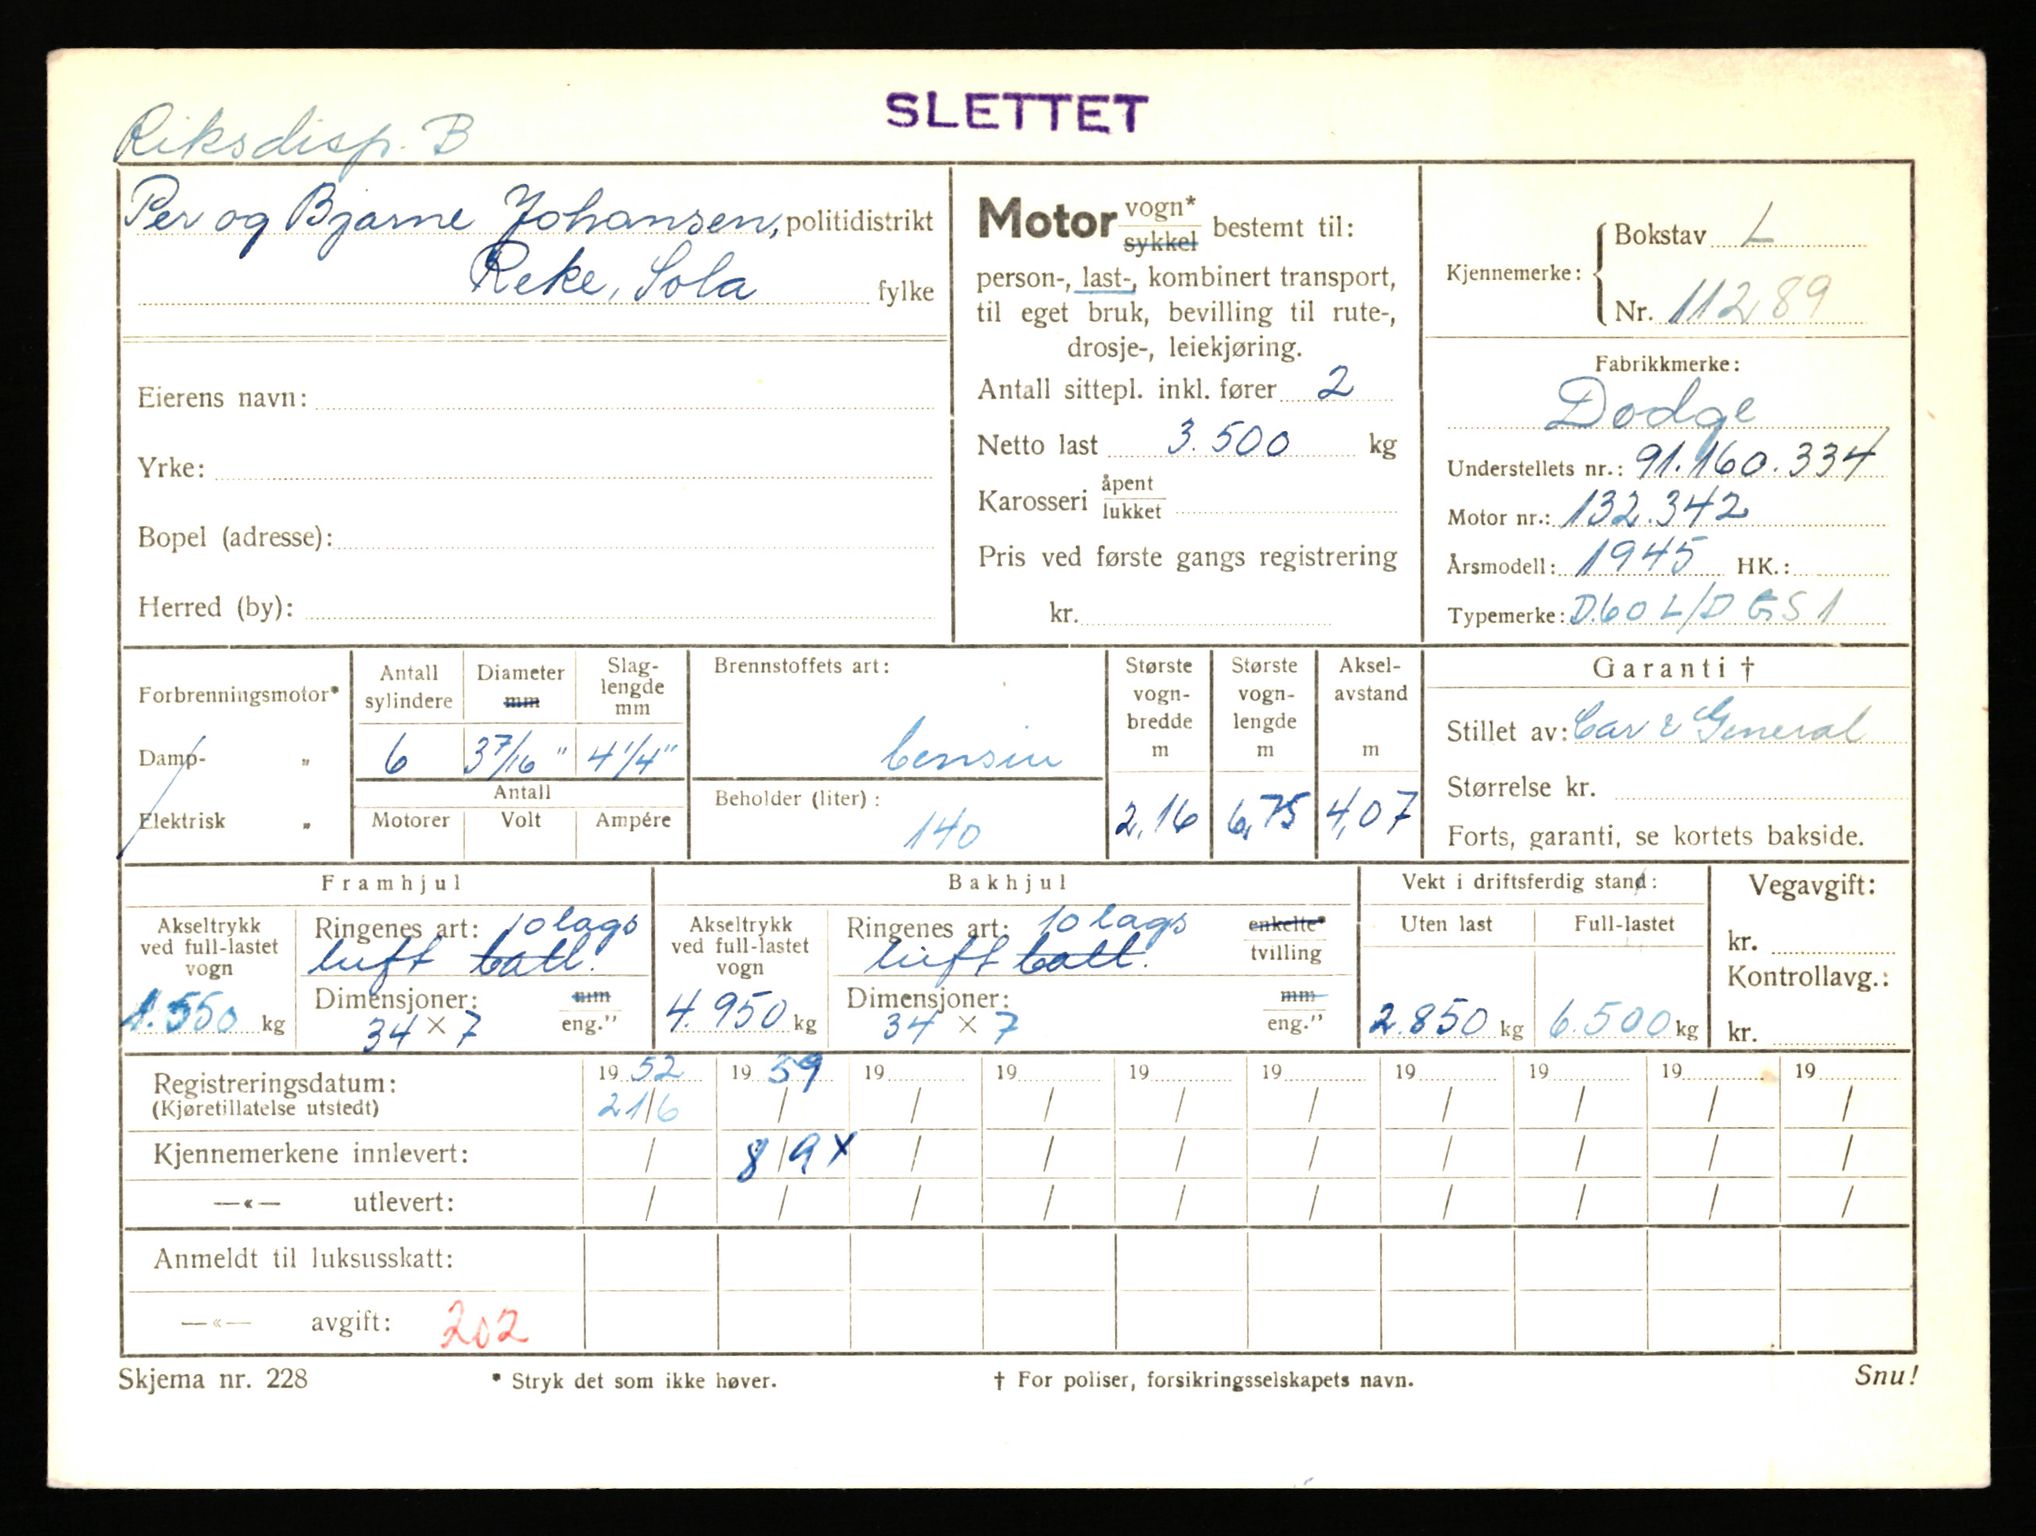 SLETTET
Riksdisp. B
Per og Bjarne Johansen, politidistrikt
Reke, Sola fylke
Eierens navn:
Yrke:
Bopel (adresse):
Herred (by):
Motor vogn* sykkel bestemt til:
person-, last-, kombinert transport,
til eget bruk, bevilling til rute-,
drosje-, leiekjøring.
Antall sittepl. inkl. fører 2
Netto last 3.500 kg
Karosseri åpent lukket
Pris ved første gangs registrering
kr.
Kjennemerke: Bokstav L
Nr. 11289
Fabrikkmerke:
Dodge
Understellets nr.: 91.160.334
Motor nr.: 132.342
Årsmodell: 1945 HK.:
Typemerke: D.60 L/D GS 1
Forbrenningsmotor*
Damp- "
Elektrisk "
Antall sylindere Diameter mm Slag-lengde mm
6 3 7/16 " 4 1/4"
Antall
Motorer Volt Ampére
Brennstoffets art:
bensin
Beholder (liter):
140
Største vogn-bredde m Største vogn-lengde m Aksel-avstand m
2,16 6,75 4,07
Garanti †
Stillet av: Car & General
Størrelse kr.
Forts, garanti, se kortets bakside.
Framhjul
Akseltrykk ved full-lastet vogn
1.550 kg
Ringenes art: 10 lags
luft ball.
Dimensjoner: mm
34 × 7 eng."
Bakhjul
Akseltrykk ved full-lastet vogn
4.950 kg
Ringenes art: 10 lags enkelte*
luft ball. tvilling
Dimensjoner: mm
34 × 7 eng."
Vekt i driftsferdig stand:
Uten last Full-lastet
2.850 kg 6.500 kg
Vegavgift:
kr.
Kontrollavg.:
kr.
Registreringsdatum: 19 52 19 59 19 19 19 19 19 19 19 19
(Kjøretillatelse utstedt) 21/6 / / / / / / / / /
Kjennemerkene innlevert: / 8/9 x / / / / / / / /
—«— utlevert: / / / / / / / / / /
Anmeldt til luksusskatt:
—«— avgift: 202
Skjema nr. 228 * Stryk det som ikke høver. † For poliser, forsikringsselskapets navn. Snu!